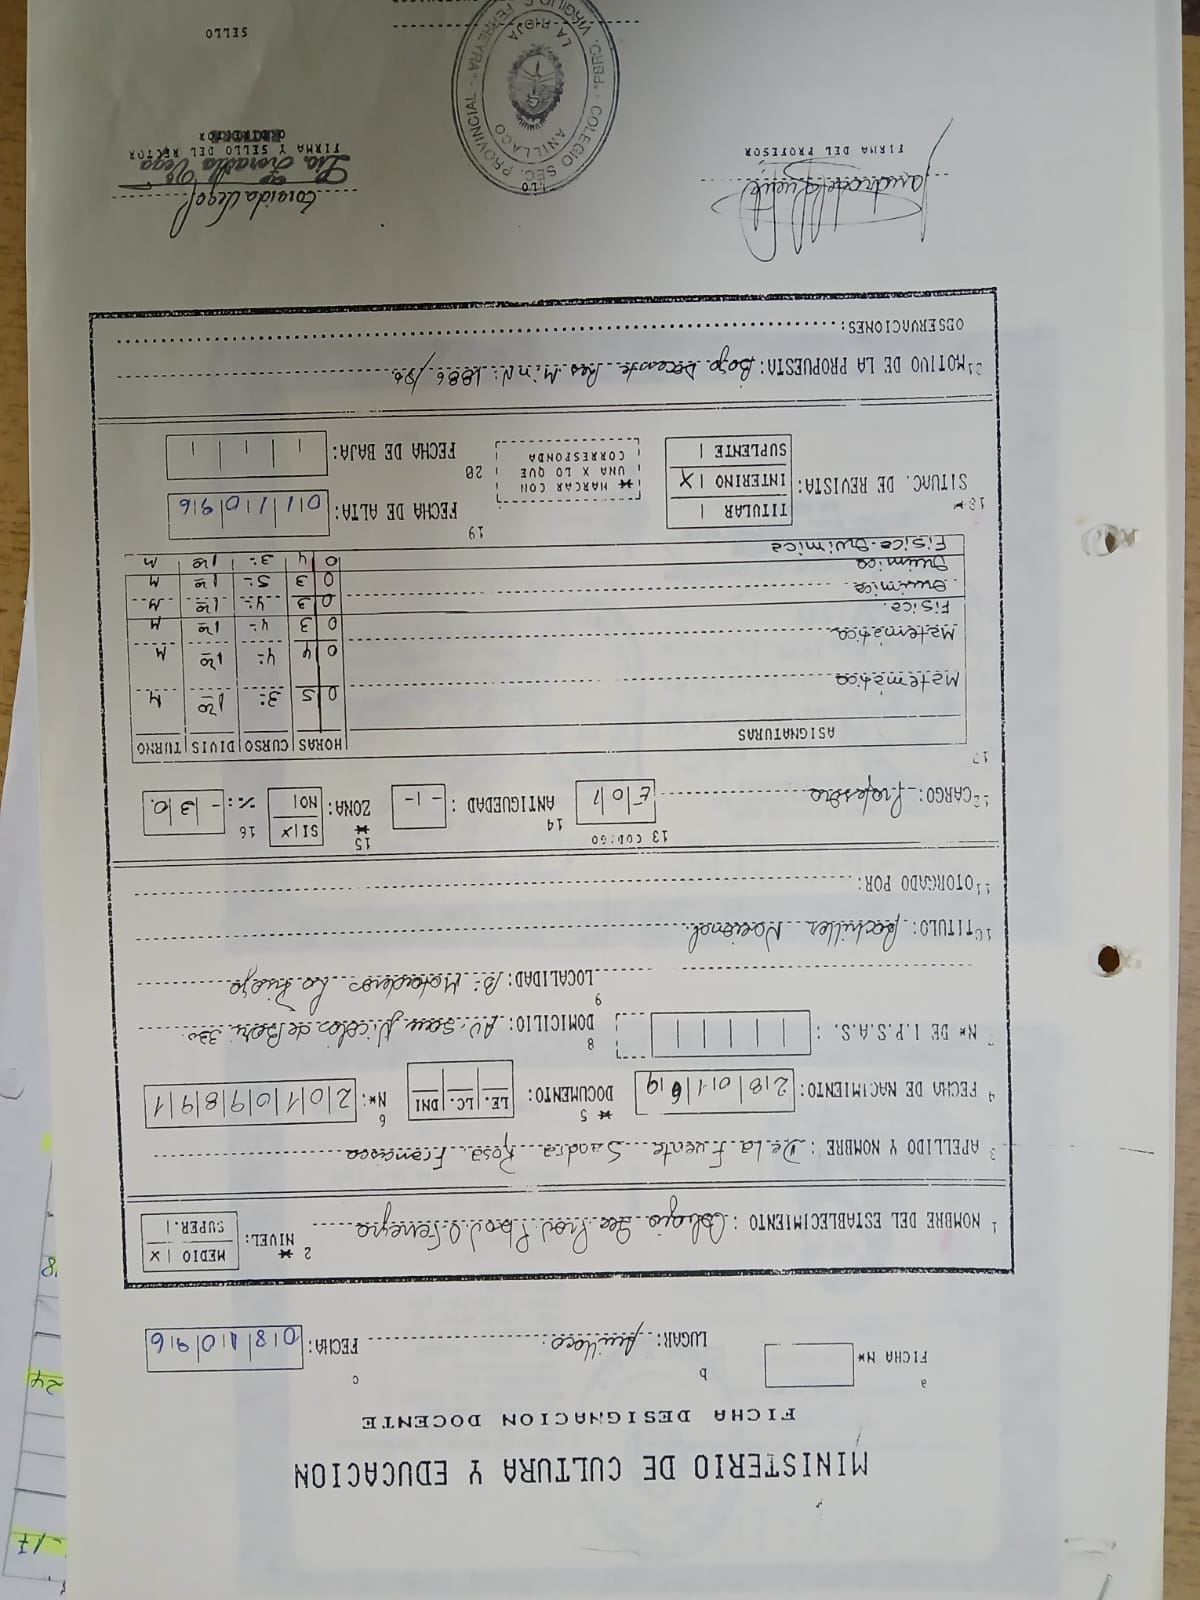 MINISTERIO DE CULTURA Y EDUCACION
FICHA DESIGNACION DOCENTE
a FICHA N* b LUGAR: Anillaco. c FECHA: 08|10|96
1 NOMBRE DEL ESTABLECIMIENTO: Colegio Sec Prov. Pbro V. Ferreyra 2 * NIVEL: MEDIO | X
SUPER. |
3 APELLIDO Y NOMBRE: De La Fuente Sandra Rosa Francesca
4 FECHA DE NACIMIENTO: 28|01|69 * 5 DOCUMENTO: LE. | LC. | DNI 6 N*: 2|0|1|0|9|8|9|1
7 N* DE I.P.S.A.S.: 8 DOMICILIO: Av. San Nicolás de Bari 330
9 LOCALIDAD: B: Matadero La Rioja
10 TITULO: Bachiller Nacional
11 OTORGADO POR:
12 CARGO: Profesora 13 CODIGO E|0|1 14 ANTIGUEDAD: - 1 - 15 * ZONA: SI | X NO | 16 %: - 3|0
17 ASIGNATURAS | HORAS | CURSO | DIVIS | TURNO
Matemática 0 5 3: 1ra M
Matemática 0 4 4: 1ra M
Física 0 3 4: 1ra M
Química 0 3 4: 1ra M
Química 0 3 5: 1ra M
Físico-Química 0 4 3: 1ra M
18* SITUAC. DE REVISTA: TITULAR |
INTERINO | X
SUPLENTE |
* MARCAR CON
UNA X LO QUE
CORRESPONDA
19 FECHA DE ALTA: 01|10|96
20 FECHA DE BAJA:
21 MOTIVO DE LA PROPUESTA: Bajo Docente Res Min N: 1886/96
OBSERVACIONES:
FIRMA DEL PROFESOR
COLEGIO SEC. PROVINCIAL - "PBRO. VIRGILIO C. FERREYRA"
ANILLACO
LA RIOJA
FIRMA Y SELLO DEL RECTOR
SELLO